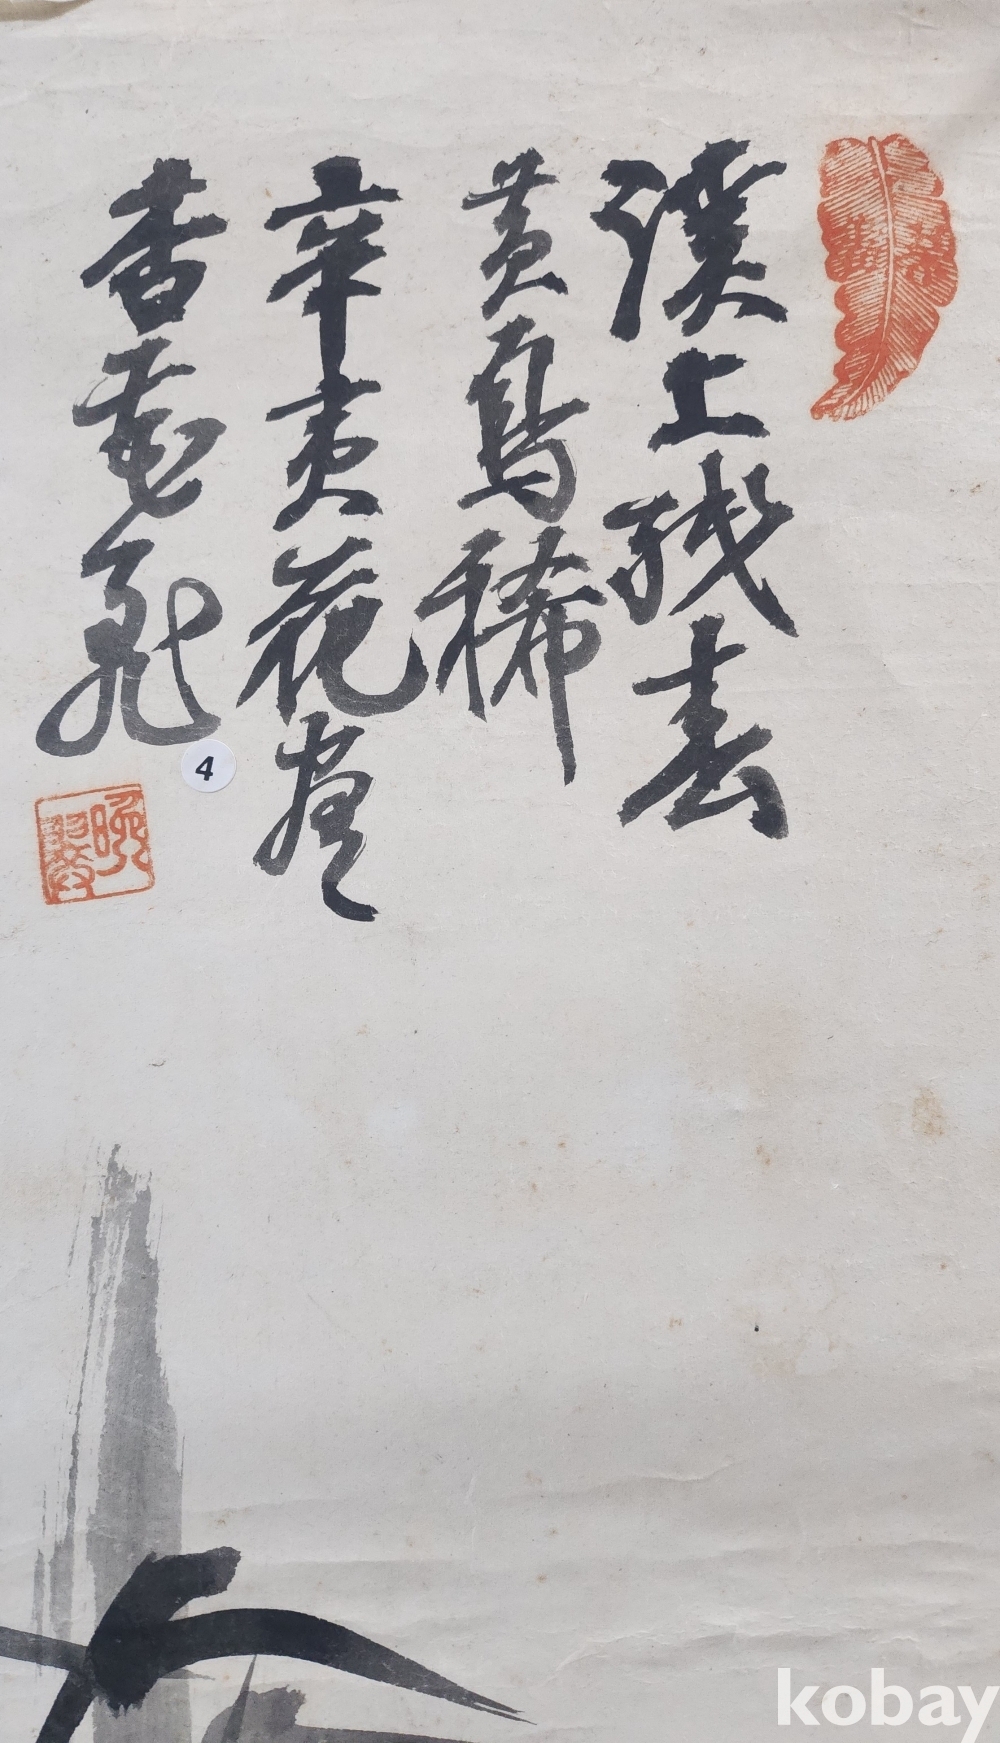 溪上残春
黄鳥稀
辛夷花盡
杏花飛
4
kobay